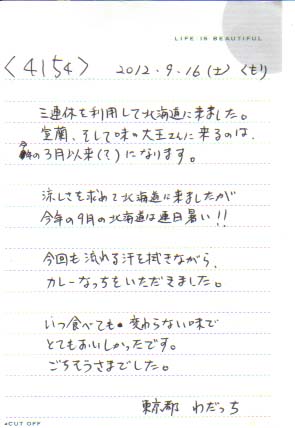 LIFE IS BEAUTIFUL
<4154> 2012.9.16(土) くもり
三連休を利用して北海道に来ました。
室蘭、そして味の大王さんに来るのは、
今年の3月以来(て)になります。
涼しさを求めて北海道に来ましたが
今年の9月の北海道は連日暑い!!
今回も流れる汗を拭きながら、
カレーなっちをいただきました。
いつ食べても変わらない味で
とてもおいしかったです。
ごちそうさまでした。
東京都 わだっち
CUT OFF